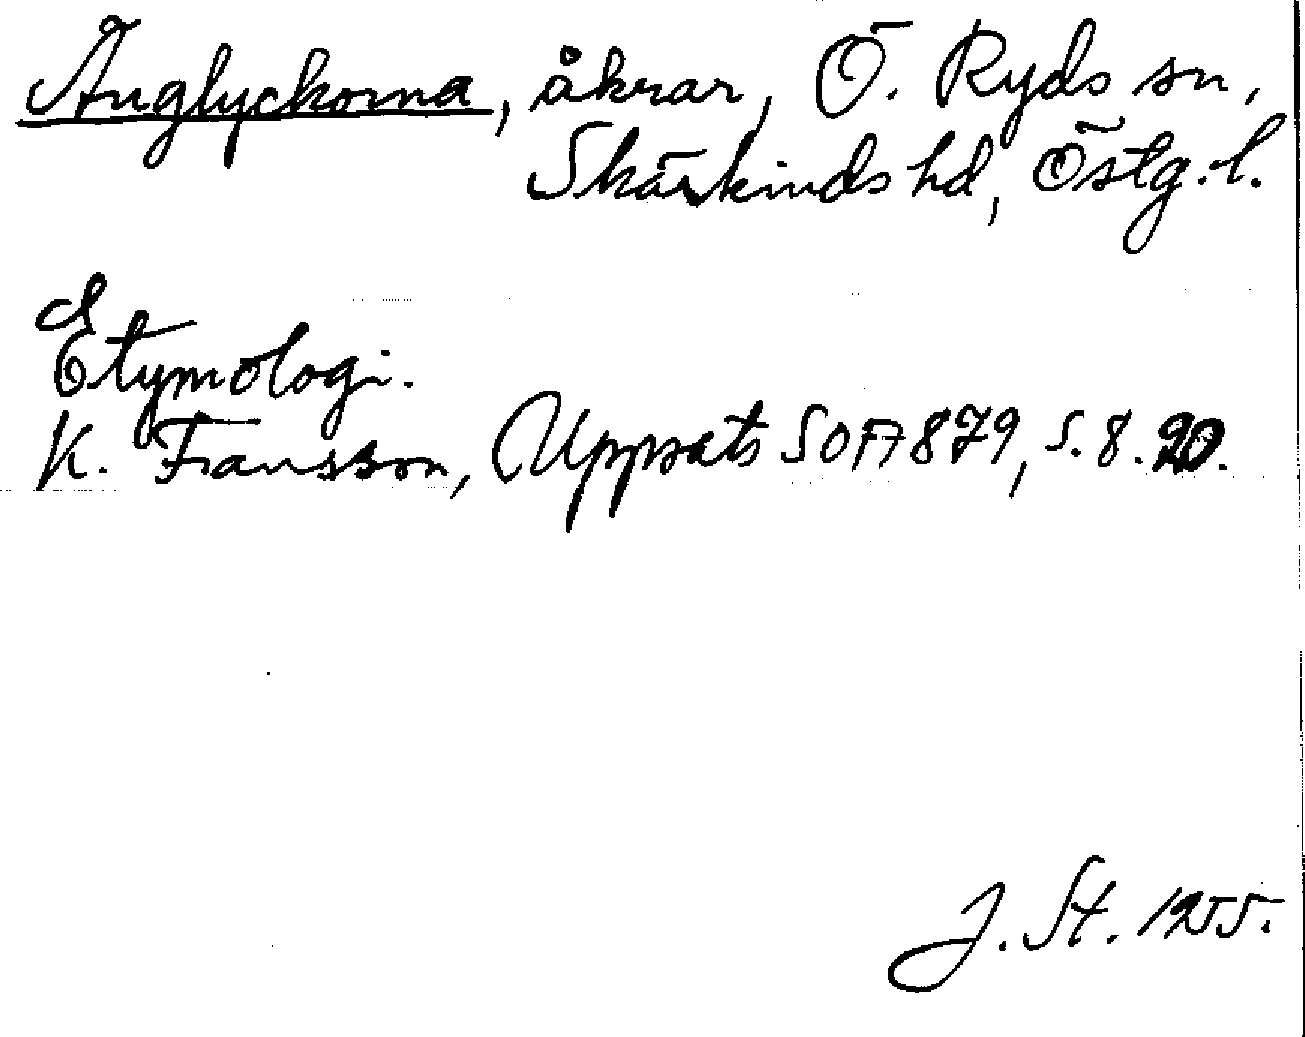 Ånglyckorna, åkrar, Ö. Ryds sn,
Skärkinds hd, Östg. l.
Etymologi.
K. Fransson, Uppsats SOFA 879, s. 8. 20.
J. St. 1955.